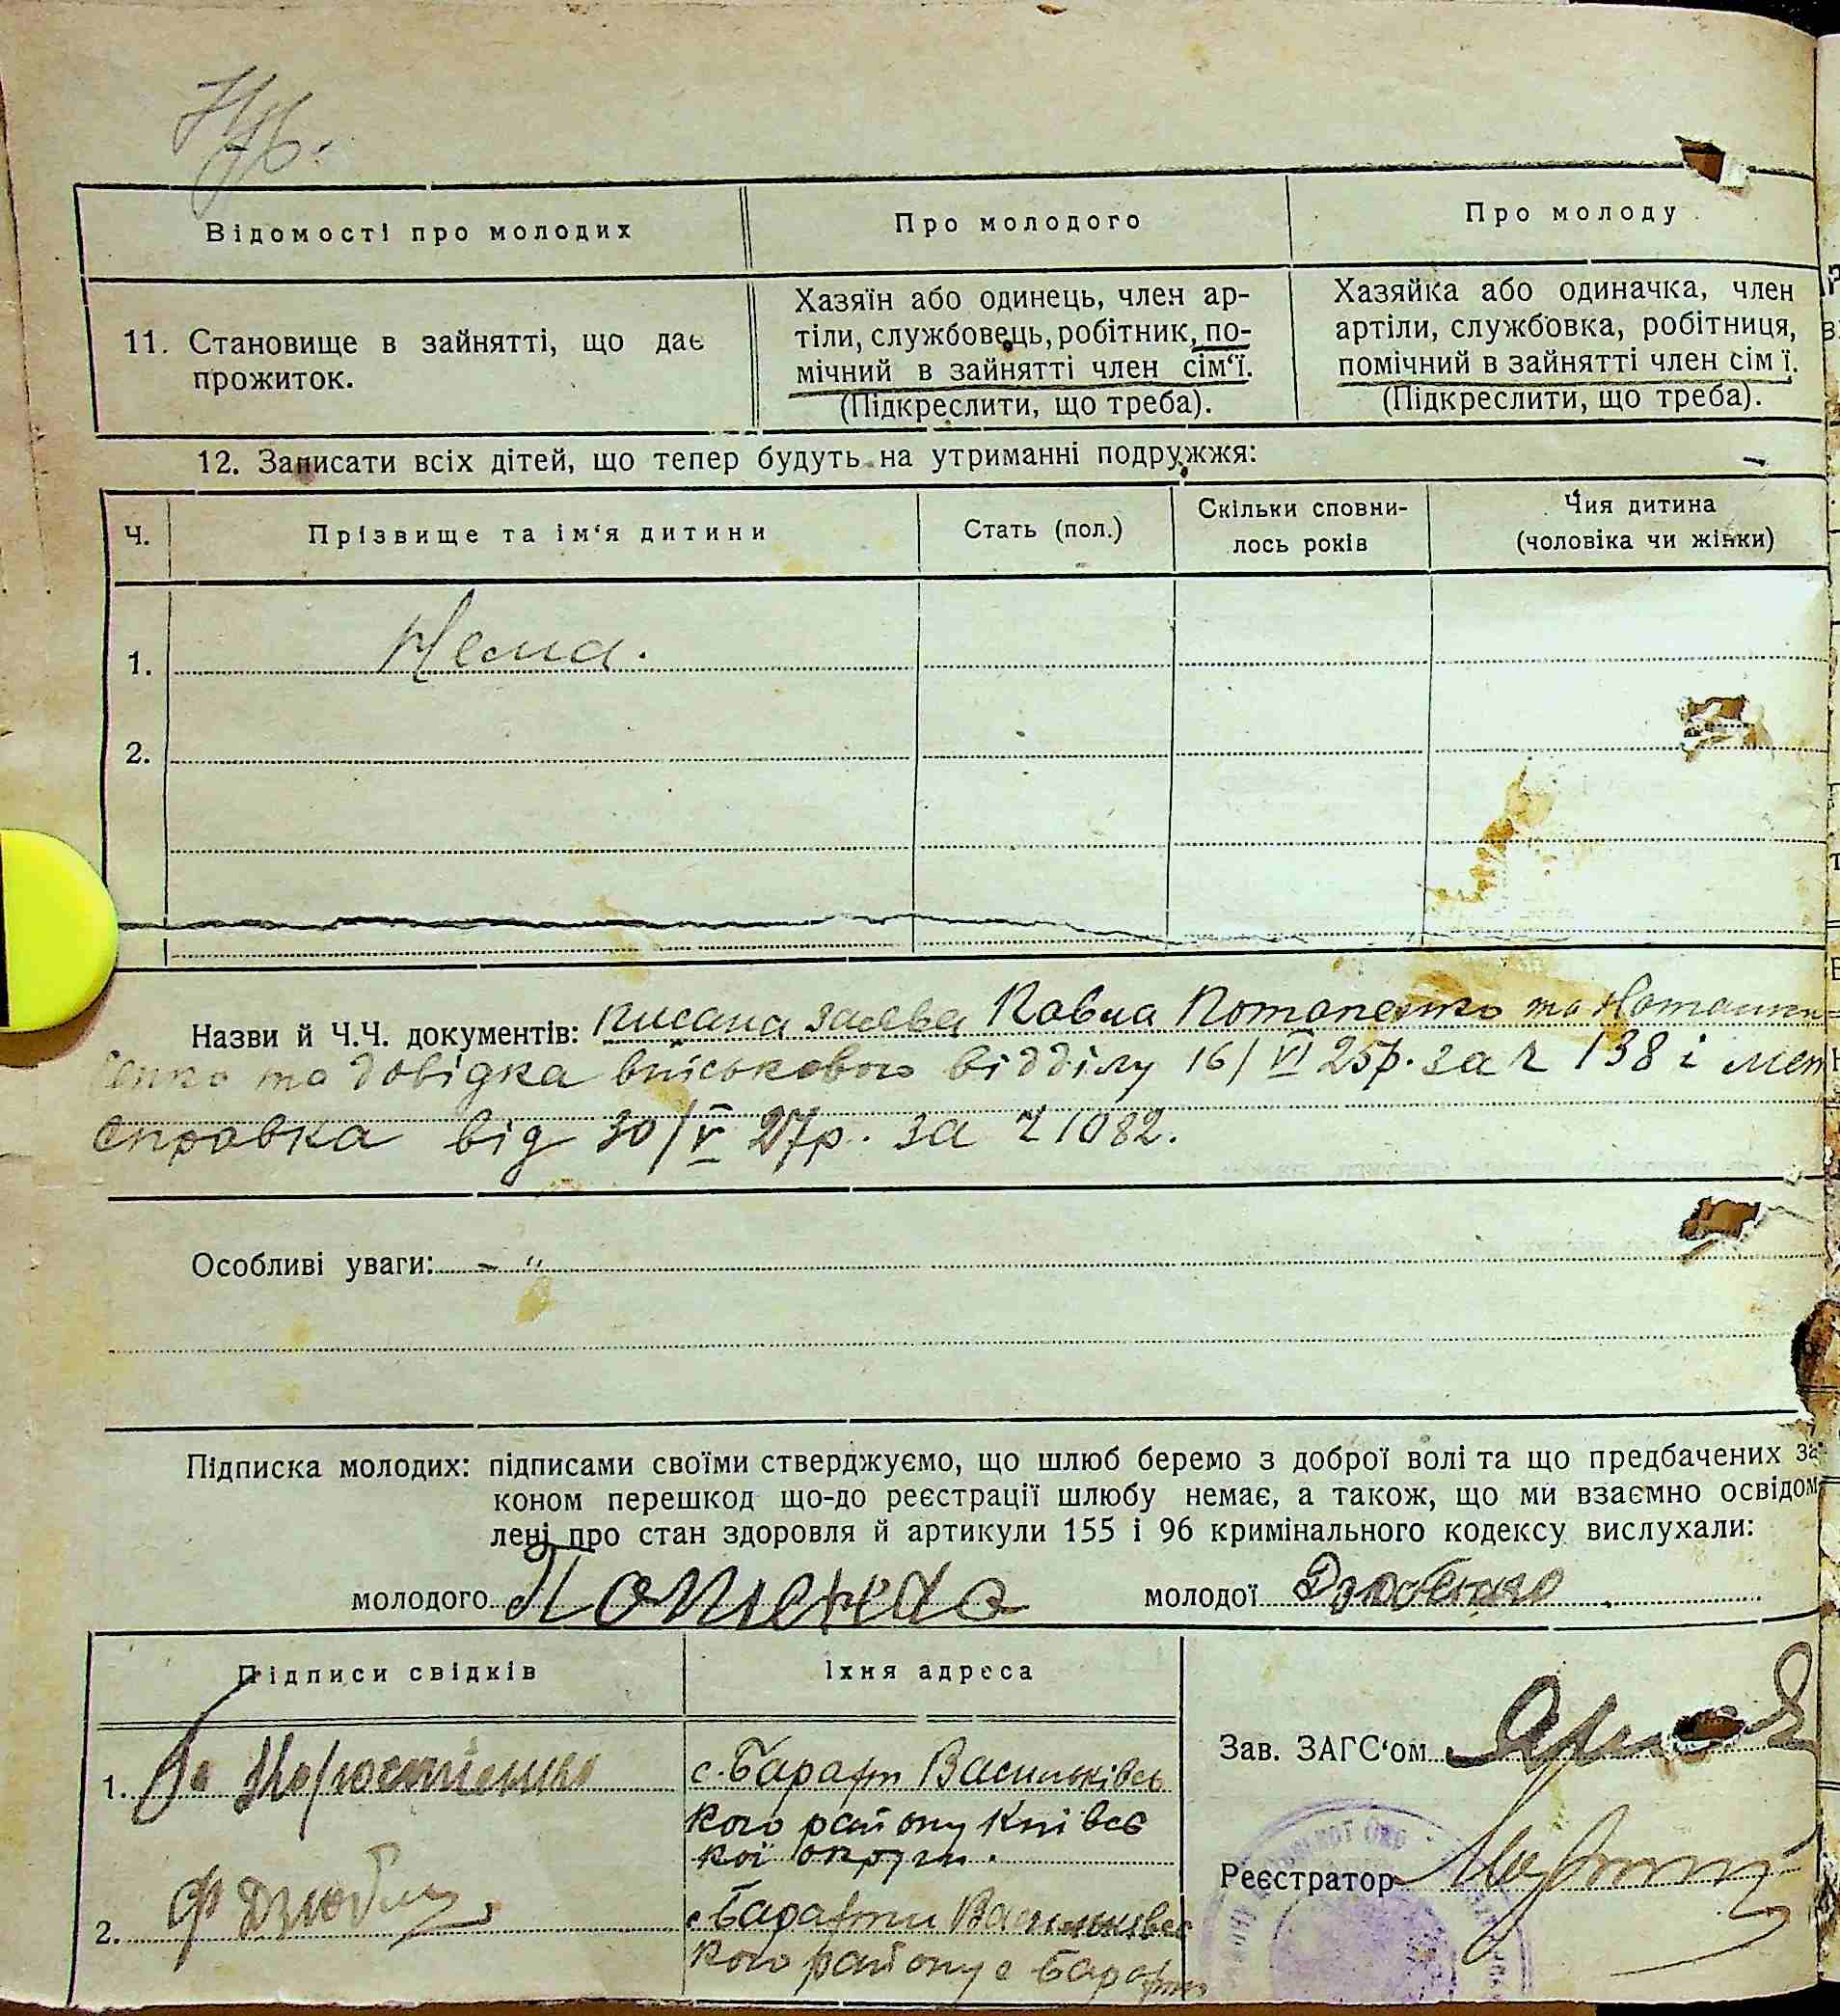 Відомості про молодих
Про молодого
Про молоду
11. Становище в зайнятті, що дає
прожиток.
Хазяїн або одинець, член ар-
тіли, службовець, робітник, по-
мічний в зайнятті член сім‘ї.
(Підкреслити, що треба).
Хазяйка або одиначка, член
артіли, службовка, робітниця,
помічний в зайнятті член сім ї.
(Підкреслити, що треба).
12. Записати всіх дітей, що тепер будуть на утриманні подружжя:
Ч.
Прізвище та ім‘я дитини
Стать (пол.)
Скільки сповни-
лось років
Чия дитина
(чоловіка чи жінки)
1. Нема.
2.
Назви й Ч.Ч. документів: писана заява Павла Потапенко та
та довідка військового відділу 16/VI 25р. за ч 138 і
справка від 30/V 27р. за ч 1082.
Особливі уваги: – "
Підписка молодих: підписами своїми стверджуємо, що шлюб беремо з доброї волі та що предбачених за
коном перешкод що-до реєстрації шлюбу немає, а також, що ми взаємно освідом
лені про стан здоровля й артикули 155 і 96 кримінального кодексу вислухали:
молодого
молодої Дзюбенко
Підписи свідків
Їхня адреса
1.
с. Барахт Васильківсь
кого району Київсь
кої округи.
2. Ф Дзюба
с Барахти Васильківсь
кого району с Барахт
Зав. ЗАГС‘ом
Реєстратор